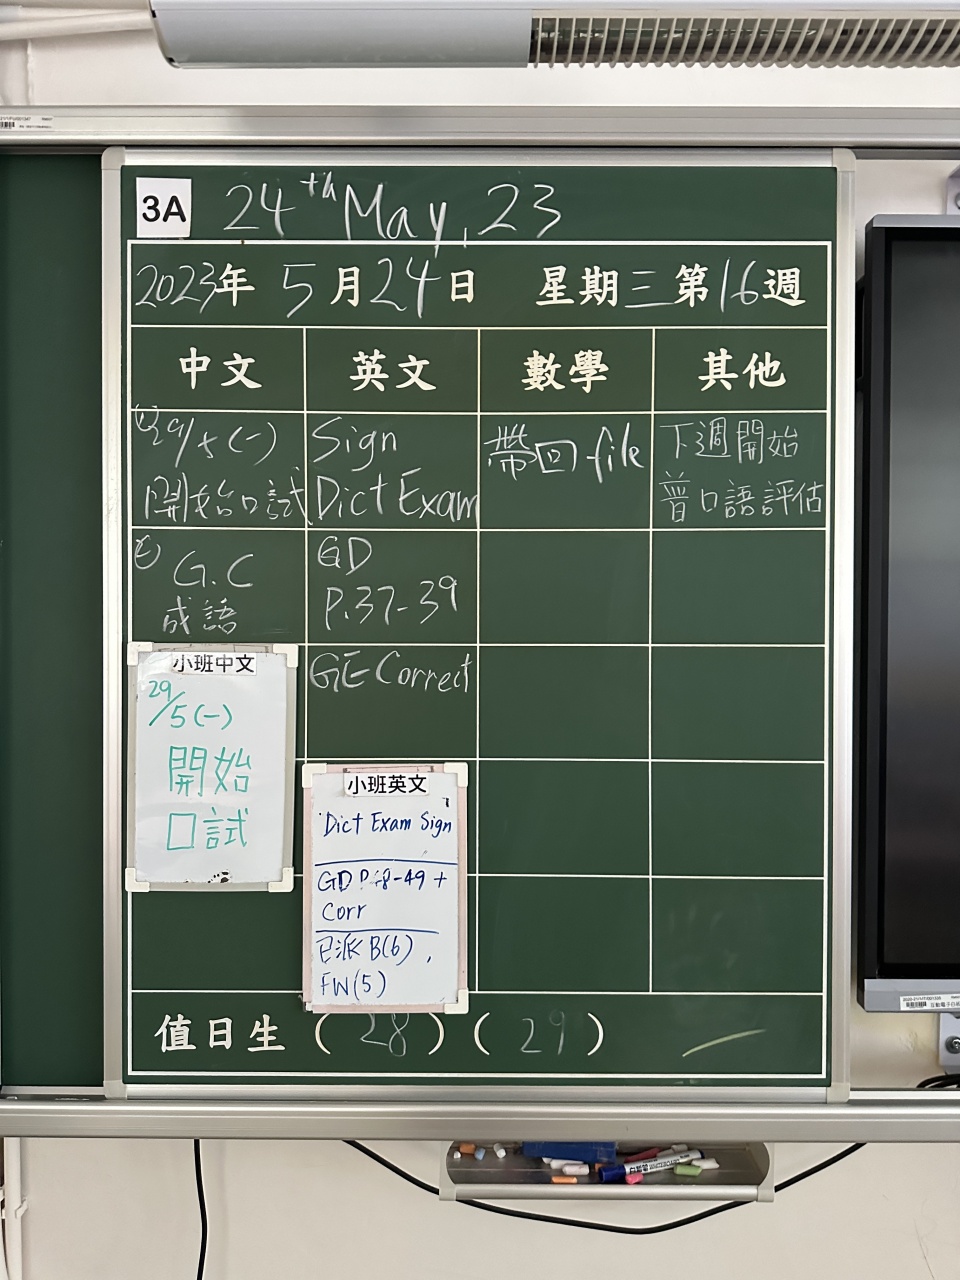 3A 24th May, 23
2023年 5月24日 星期三第16週
中文 英文 數學 其他
29/5(一)
開始口試
Sign
Dict Exam
帶回 file
下週開始
普口語評估
G.C
成語
GD
P.37-39
GE Correct
小班中文
29/5(一)
開始
口試
小班英文
Dict Exam Sign
GD P48-49 +
Corr
已派 B(6),
FW(5)
值日生 (28) (29)